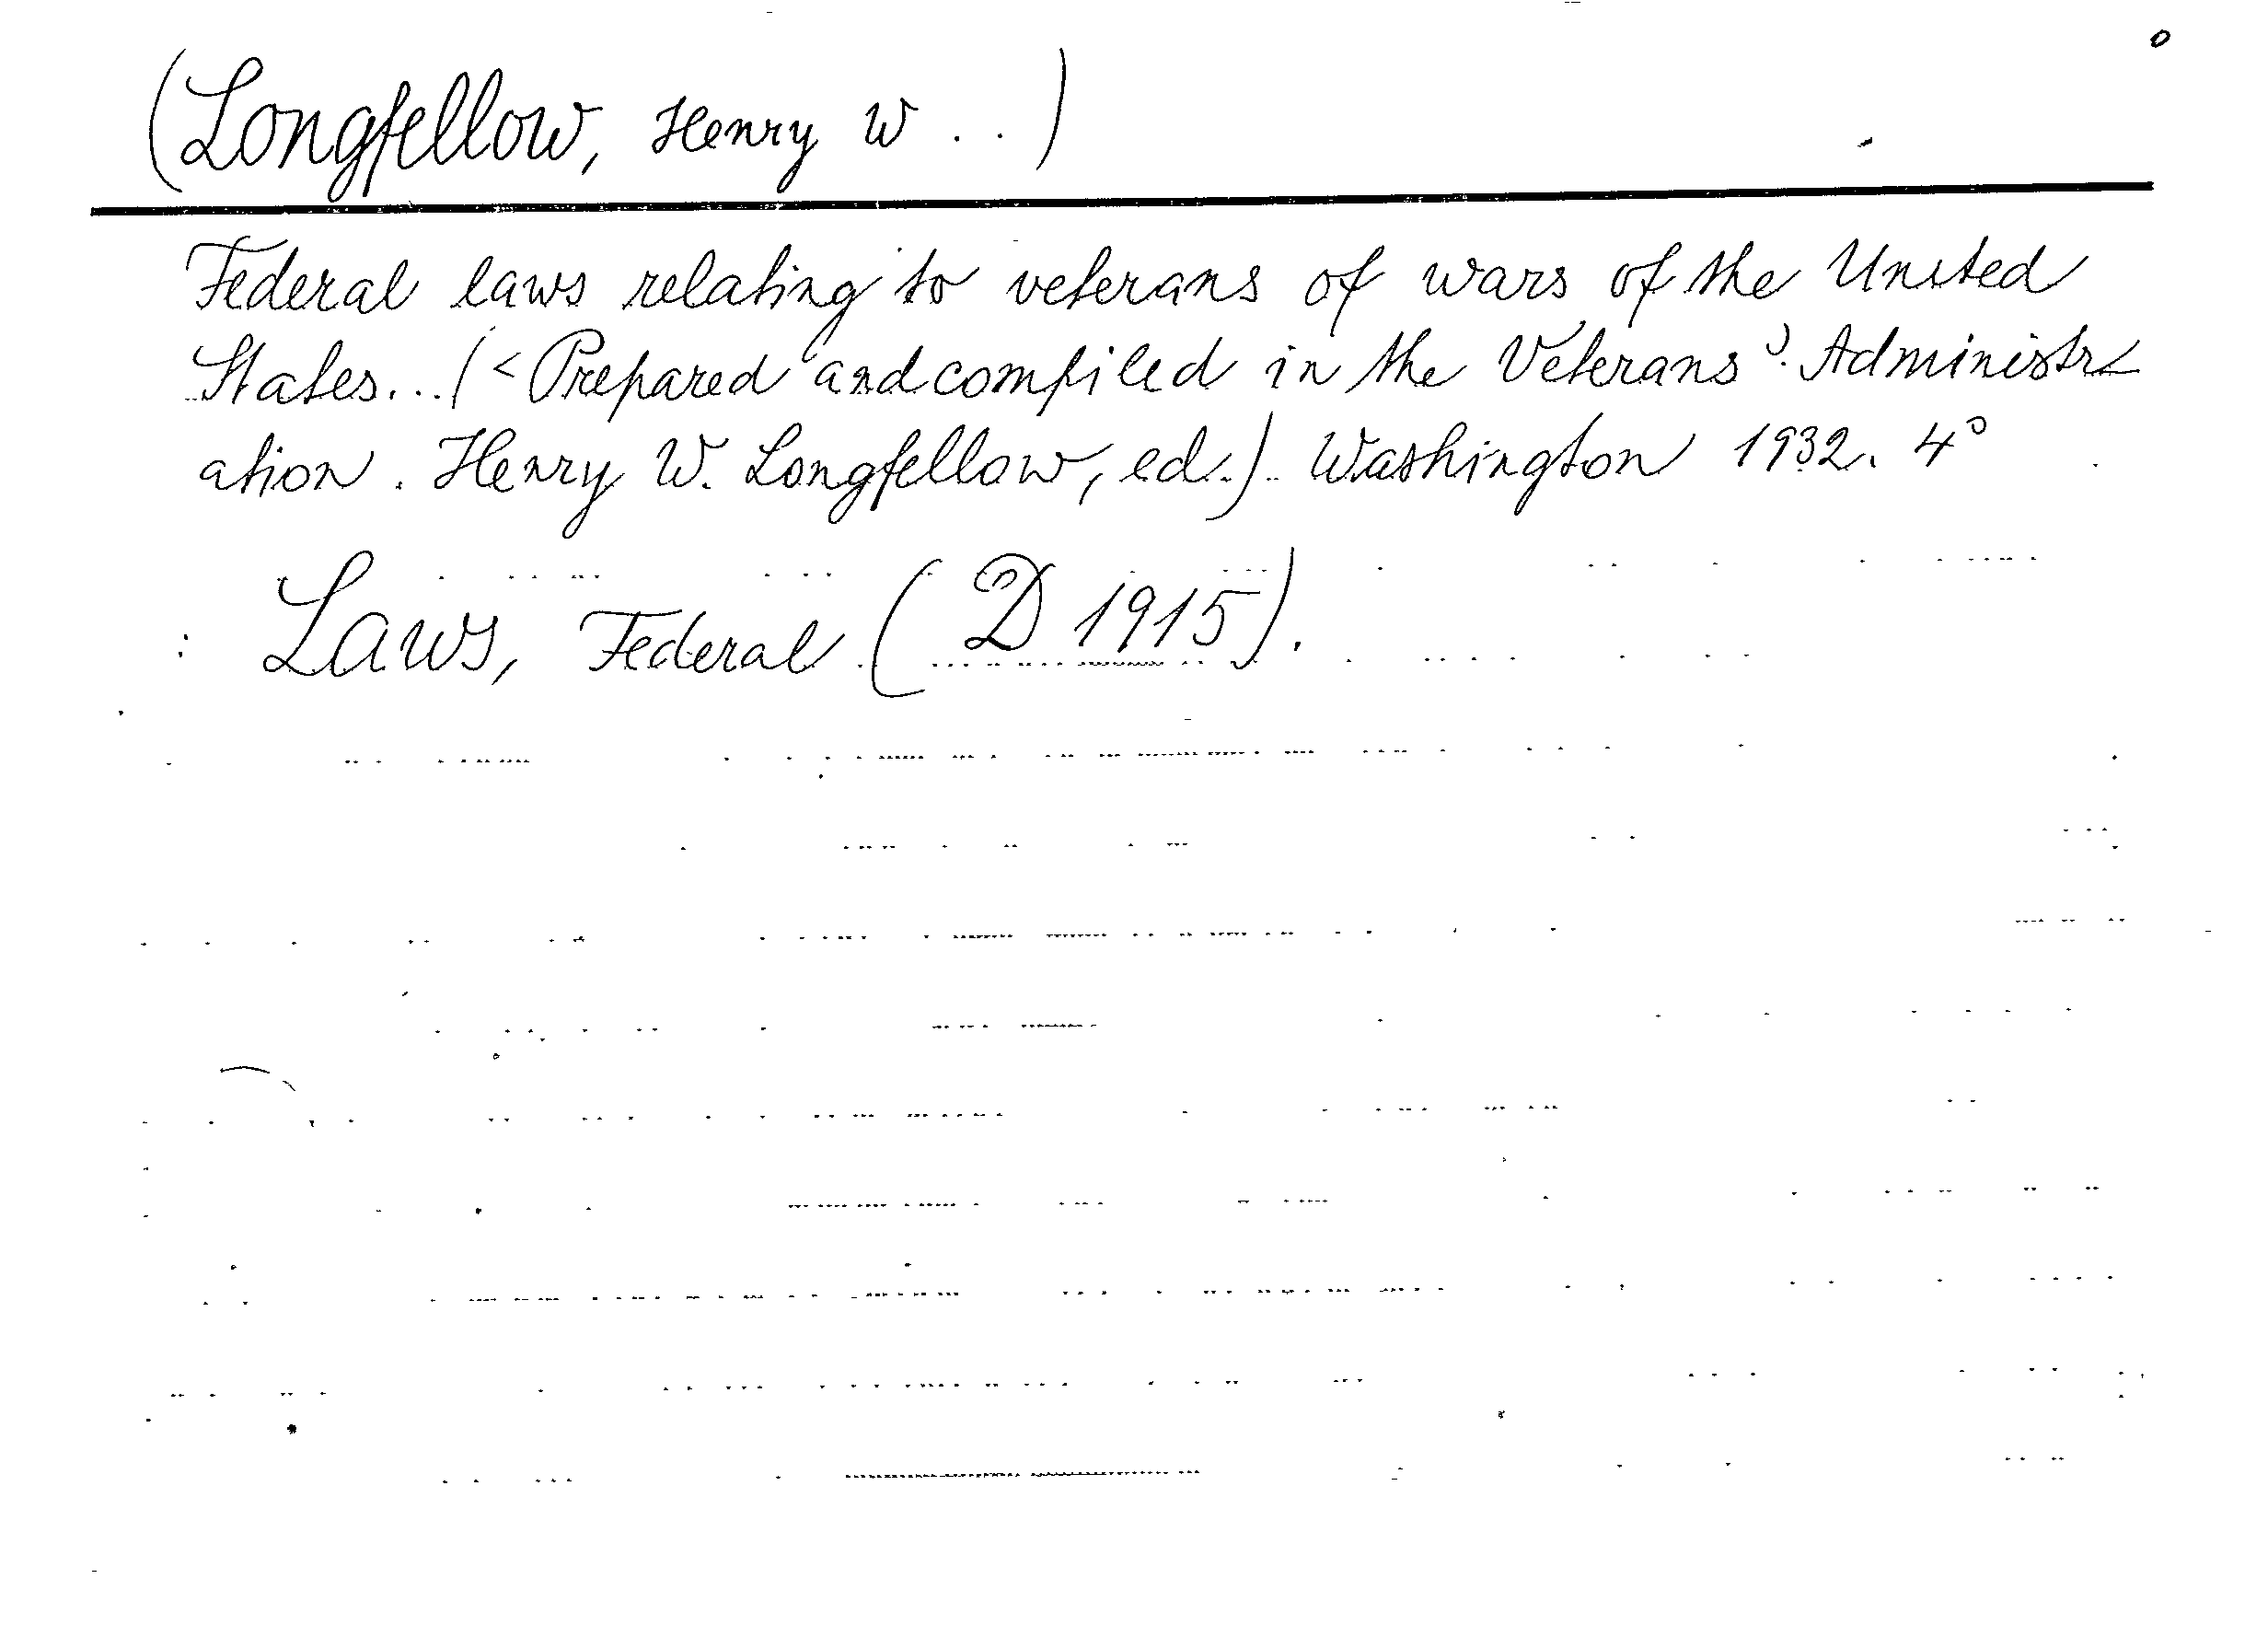 (Longfellow, Henry W..)
Federal laws relating to veterans of wars of the United
States...(<Prepared and compiled in the Veterans' Administr<
ation. Henry W. Longfellow, ed.). Washington 1932. 4°
: Laws, Federal (D 1915).